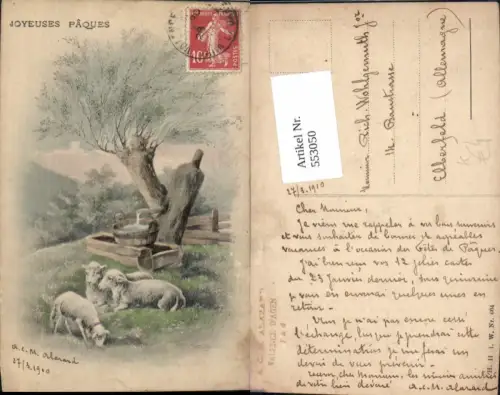 JOYEUSES PÂQUES
10
A.C.M. Abrard
27/3.1910
Artikel Nr.
553050
Monsieur Rich. Wohlgemuth jr
Elberfeld (Allemagne)
27/3.1910
Cher Monsieur,
Je viens me rappeler à vos bons souvenirs
et vous souhaiter de bonnes et agréables
vacances à l'occasion des Fêtes de Pâques.
J'ai bien reçu vos 12 jolies cartes
du 23 Janvier dernier, dans quinzaine
je vais en envoyer quelques unes en
retour.
je n'ai pas encore cessé
l'échange, lorsque je prendrai cette
détermination je me ferai un
devoir de vous prévenir.
cher Monsieur, les
de votre bien dévoué A.C.M. Abrard
M. M. I. W. Nr. 494